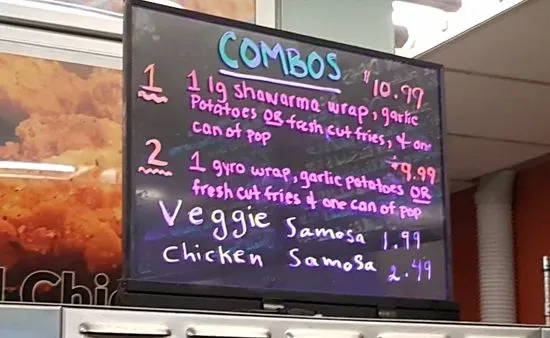 COMBOS
1 1 lg shawarma wrap, garlic $10.99
Potatoes OR fresh cut fries, & one
can of pop
2 1 gyro wrap, garlic potatoes OR $9.99
fresh cut fries & one can of pop
Veggie Samosa 1.99
Chicken Samosa 2.49